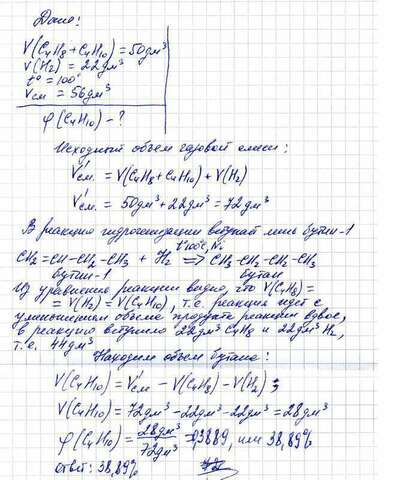 Дано:
V(C4H8+C4H10)=50дм³
V(H2)=22дм³
t°=100°
Vсм=56дм³
φ(C4H10)-?
Исходный объем газовой смеси:
V'см.=V(C4H8+C4H10)+V(H2)
V'см.=50дм³+22дм³=72дм³
В реакцию гидрогенизации вступает лишь бутен-1
t°100°C, Ni
CH2=CH-CH2-CH3 + H2 => CH3-CH2-CH2-CH3
бутен-1 бутан
Из уравнения реакции видно, что V(C4H8)=
=V(H2)=V(C4H10), т.е. реакция идет с
уменьшением объема продукта реакции вдвое,
в реакцию вступило 22дм³ C4H8 и 22дм³ H2,
т.е. 44дм³
Находим объем бутана:
V(C4H10)=V'см-V(C4H8)-V(H2);
V(C4H10)=72дм³-22дм³-22дм³=28дм³
φ(C4H10)=28дм³/72дм³=0,3889, или 38,89%
ответ: 38,89%